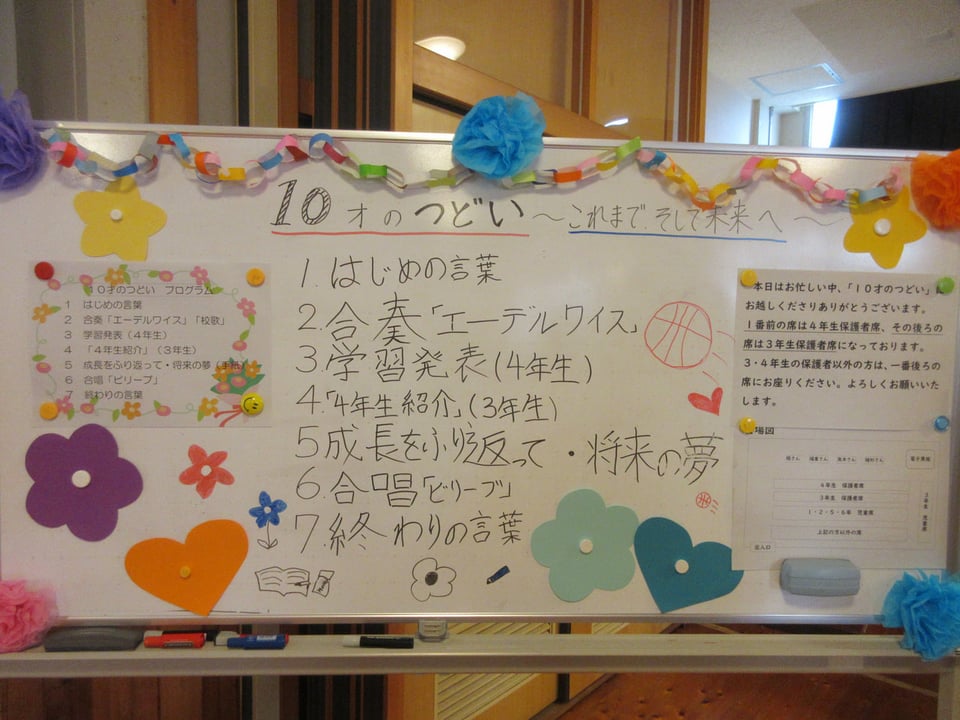 10才のつどい ～これまで、そして未来へ～
1.はじめの言葉
2.合奏「エーデルワイス」
3.学習発表(4年生)
4.「4年生紹介」(3年生)
5成長をふり返って・将来の夢
6.合唱「ビリーブ」
7.終わりの言葉
１０才のつどい プログラム
1 はじめの言葉
2 合奏「エーデルワイス」「校歌」
3 学習発表（４年生）
4 「４年生紹介」（３年生）
5 成長をふり返って・将来の夢（手紙）
6 合唱「ビリーブ」
7 終わりの言葉
本日はお忙しい中、「１０才のつどい」に
お越しくださりありがとうございます。
１番前の席は４年生保護者席、その後ろの
席は３年生保護者席になっております。
３・４年生の保護者以外の方は、一番後ろの
席にお座りください。よろしくお願いいた
します。
場図
電子黒板
４年生 保護者席
３年生 保護者席
１・２・５・６年 児童席
上記の方以外の席
３年生 児童席
出入口